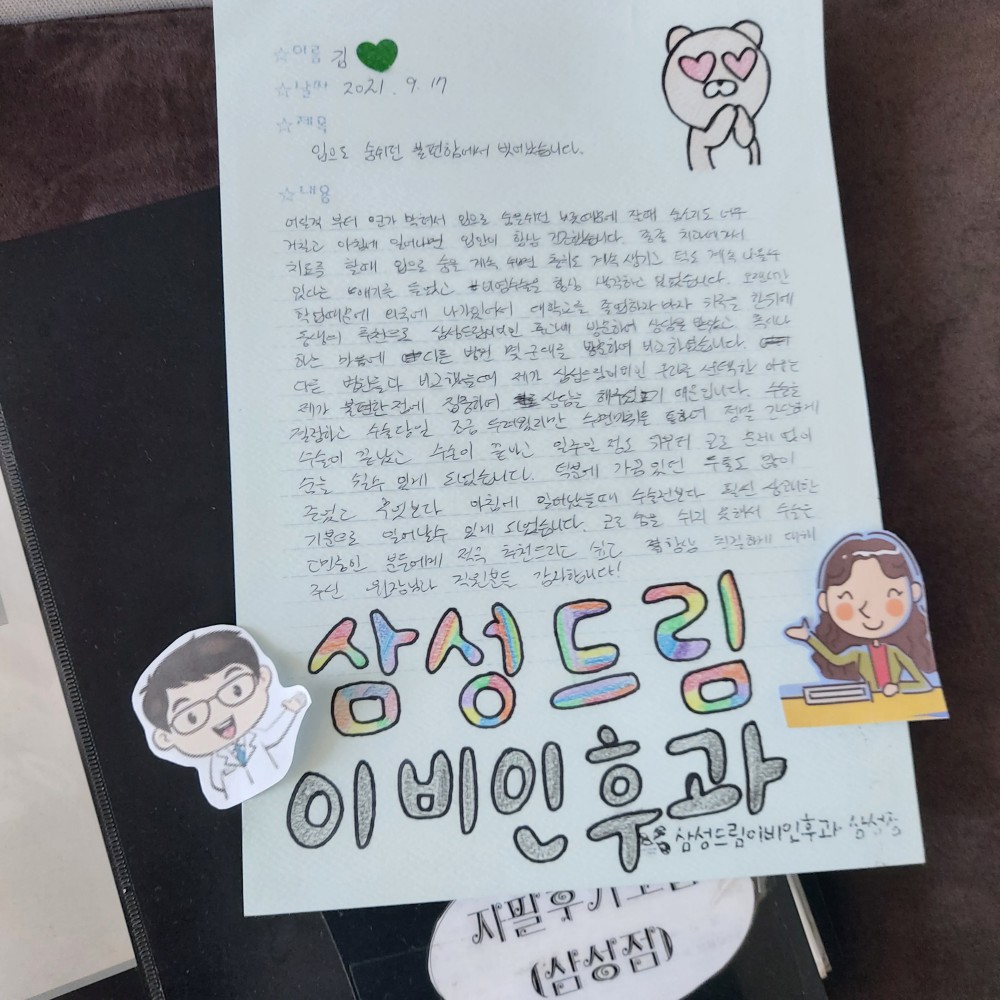 ☆이름 김
☆날짜 2021. 9. 17
☆제목
입으로 숨쉬던 불편함에서 벗어났습니다.
☆내용
어릴적 부터 언가 막혀서 입으로 숨을쉬던 때문에 잘때 숨소리도 너무
거칠고 아침에 일어나면 입안이 항상 건조했습니다. 종종 치과에가서
치료를 할때 입으로 숨을 계속 쉬면 충치도 계속 생기고 턱도 계속 나올수
있다는 얘기를 들었고 비염수술을 항상 생각하고 있었습니다. 오랜시간
학업때문에 외국에 나가있어서 대학교를 졸업하자마자 귀국을 한뒤에
동생의 추천으로 삼성드림이비인후과에 방문하여 상담을 받았고 혹시나
하는 마음에 다른 병원 몇 군데를 방문하여 비교하였습니다.
다른 병원들과 비교했을때 제가 삼성드림이비인후과를 선택한 이유는
제가 불편한점에 집중하여 상담을 해주셨기 때문입니다. 수술을
결정하고 수술당일 조금 두려웠지만 수면마취를 통하여 정말 간단하게
수술이 끝났고 수술이 끝나고 일주일 정도 뒤부터 코로 문제 없이
숨을 쉴수 있게 되었습니다. 덕분에 가끔 있던 두통도 많이
줄었고 무엇보다 아침에 일어났을때 수술전보다 훨씬 상쾌한
기분으로 일어날수 있게 되었습니다. 코로 숨을 쉬지 못해서 수술을
고민중인 분들에게 적극 추천드리고 싶고 항상 친절하게 대해
주신 원장님과 직원분들 감사합니다!
삼성드림
이비인후과
삼성드림이비인후과 삼성점
자발후기
(삼성점)